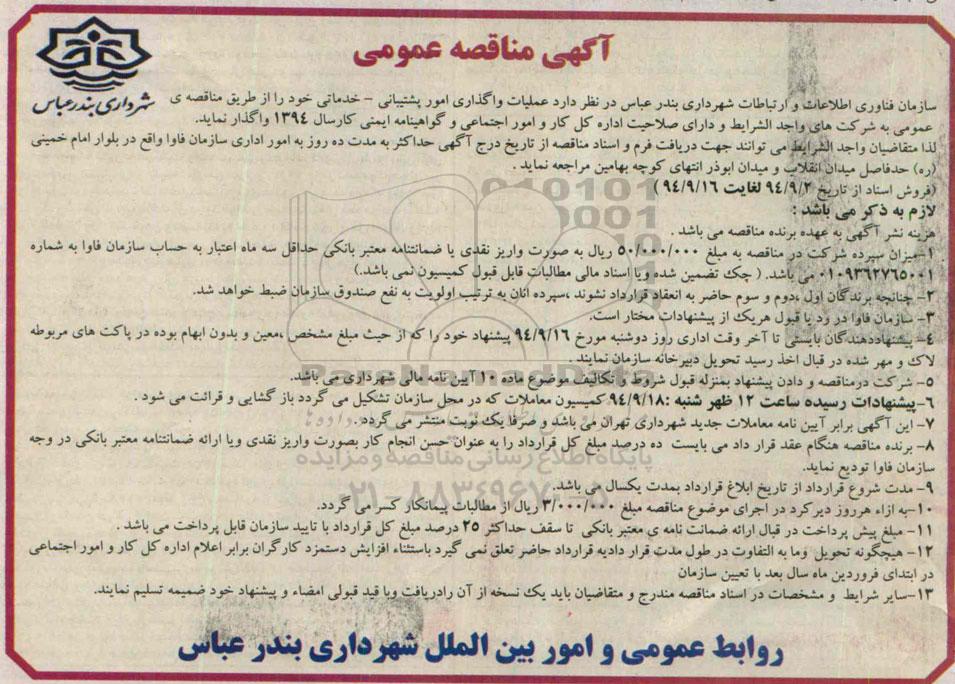 آگهی مناقصه عمومی
شهرداری بندرعباس
سازمان فناوری اطلاعات و ارتباطات شهرداری بندر عباس در نظر دارد عملیات واگذاری امور پشتیبانی - خدماتی خود را از طریق مناقصه ی
عمومی به شرکت های واجد الشرایط و دارای صلاحیت اداره کل کار و امور اجتماعی و گواهینامه ایمنی کارسال ۱۳۹۴ واگذار نماید.
لذا متقاضیان واجد الشرایط می توانند جهت دریافت فرم و اسناد مناقصه از تاریخ درج آگهی حداکثر به مدت ده روز به امور اداری سازمان فاوا واقع در بلوار امام خمینی
(ره) حدفاصل میدان انقلاب و میدان ابوذر انتهای کوچه بهامین مراجعه نماید .
(فروش اسناد از تاریخ ۹۴/۹/۲ لغایت ۹۴/۹/۱۶ )
لازم به ذکر می باشد :
هزینه نشر آگهی به عهده برنده مناقصه می باشد .
۱-میزان سپرده شرکت در مناقصه به مبلغ ۵۰/۰۰۰/۰۰۰ ریال به صورت واریز نقدی یا ضمانتنامه معتبر بانکی حداقل سه ماه اعتبار به حساب سازمان فاوا به شماره
۰۱۰۹۳۶۲۷۶۵۰۰۱ می باشد. ( چک تضمین شده ویا اسناد مالی مطالبات قابل قبول کمیسیون نمی باشد.)
۲- چنانچه برندگان اول ،دوم و سوم حاضر به انعقاد قرارداد نشوند ،سپرده آنان به ترتیب اولویت به نفع صندوق سازمان ضبط خواهد شد.
۳- سازمان فاوا در رد یا قبول هریک از پیشنهادات مختار است.
۴- پیشنهاددهندگان بایستی تا آخر وقت اداری روز دوشنبه مورخ ۹۴/۹/۱۶ پیشنهاد خود را که از حیث مبلغ مشخص ،معین و بدون ابهام بوده در پاکت های مربوطه
لاک و مهر شده در قبال اخذ رسید تحویل دبیرخانه سازمان نمایند .
۵- شرکت درمناقصه و دادن پیشنهاد بمنزله قبول شروط و تکالیف موضوع ماده ۱۰ آیین نامه مالی شهرداری می باشد.
۶-پیشنهادات رسیده ساعت ۱۲ ظهر شنبه :۹۴/۹/۱۸ کمیسیون معاملات که در محل سازمان تشکیل می گردد باز گشایی و قرائت می شود .
۷- این آگهی برابر آیین نامه معاملات جدید شهرداری تهران می باشد و صرفا یک نوبت منتشر می گردد .
۸- برنده مناقصه هنگام عقد قرار داد می بایست ده درصد مبلغ کل قرارداد را به عنوان حسن انجام کار بصورت واریز نقدی ویا ارائه ضمانتنامه معتبر بانکی در وجه
سازمان فاوا تودیع نماید.
۹- مدت شروع قرارداد از تاریخ ابلاغ قرارداد بمدت یکسال می باشد.
۱۰-به ازاء هرروز دیرکرد در اجرای موضوع مناقصه مبلغ ۳/۰۰۰/۰۰۰ ریال از مطالبات پیمانکار کسر می گردد.
۱۱- مبلغ پیش پرداخت در قبال ارائه ضمانت نامه ی معتبر بانکی تا سقف حداکثر ۲۵ درصد مبلغ کل قرارداد با تایید سازمان قابل پرداخت می باشد .
۱۲- هیچگونه تحویل وما به التفاوت در طول مدت قرار دادبه قرارداد حاضر تعلق نمی گیرد باستثناء افزایش دستمزد کارگران برابر اعلام اداره کل کار و امور اجتماعی
در ابتدای فروردین ماه سال بعد با تعیین سازمان
۱۳-سایر شرایط و مشخصات در اسناد مناقصه مندرج و متقاضیان باید یک نسخه از آن رادریافت وبا قید قبولی امضاء و پیشنهاد خود ضمیمه تسلیم نمایند.
روابط عمومی و امور بین الملل شهرداری بندر عباس
ParsNamadData
پایگاه اطلاع رسانی مناقصه و مزایده
۰۲۱-۸۸۳۴۹۶۷۰-۵